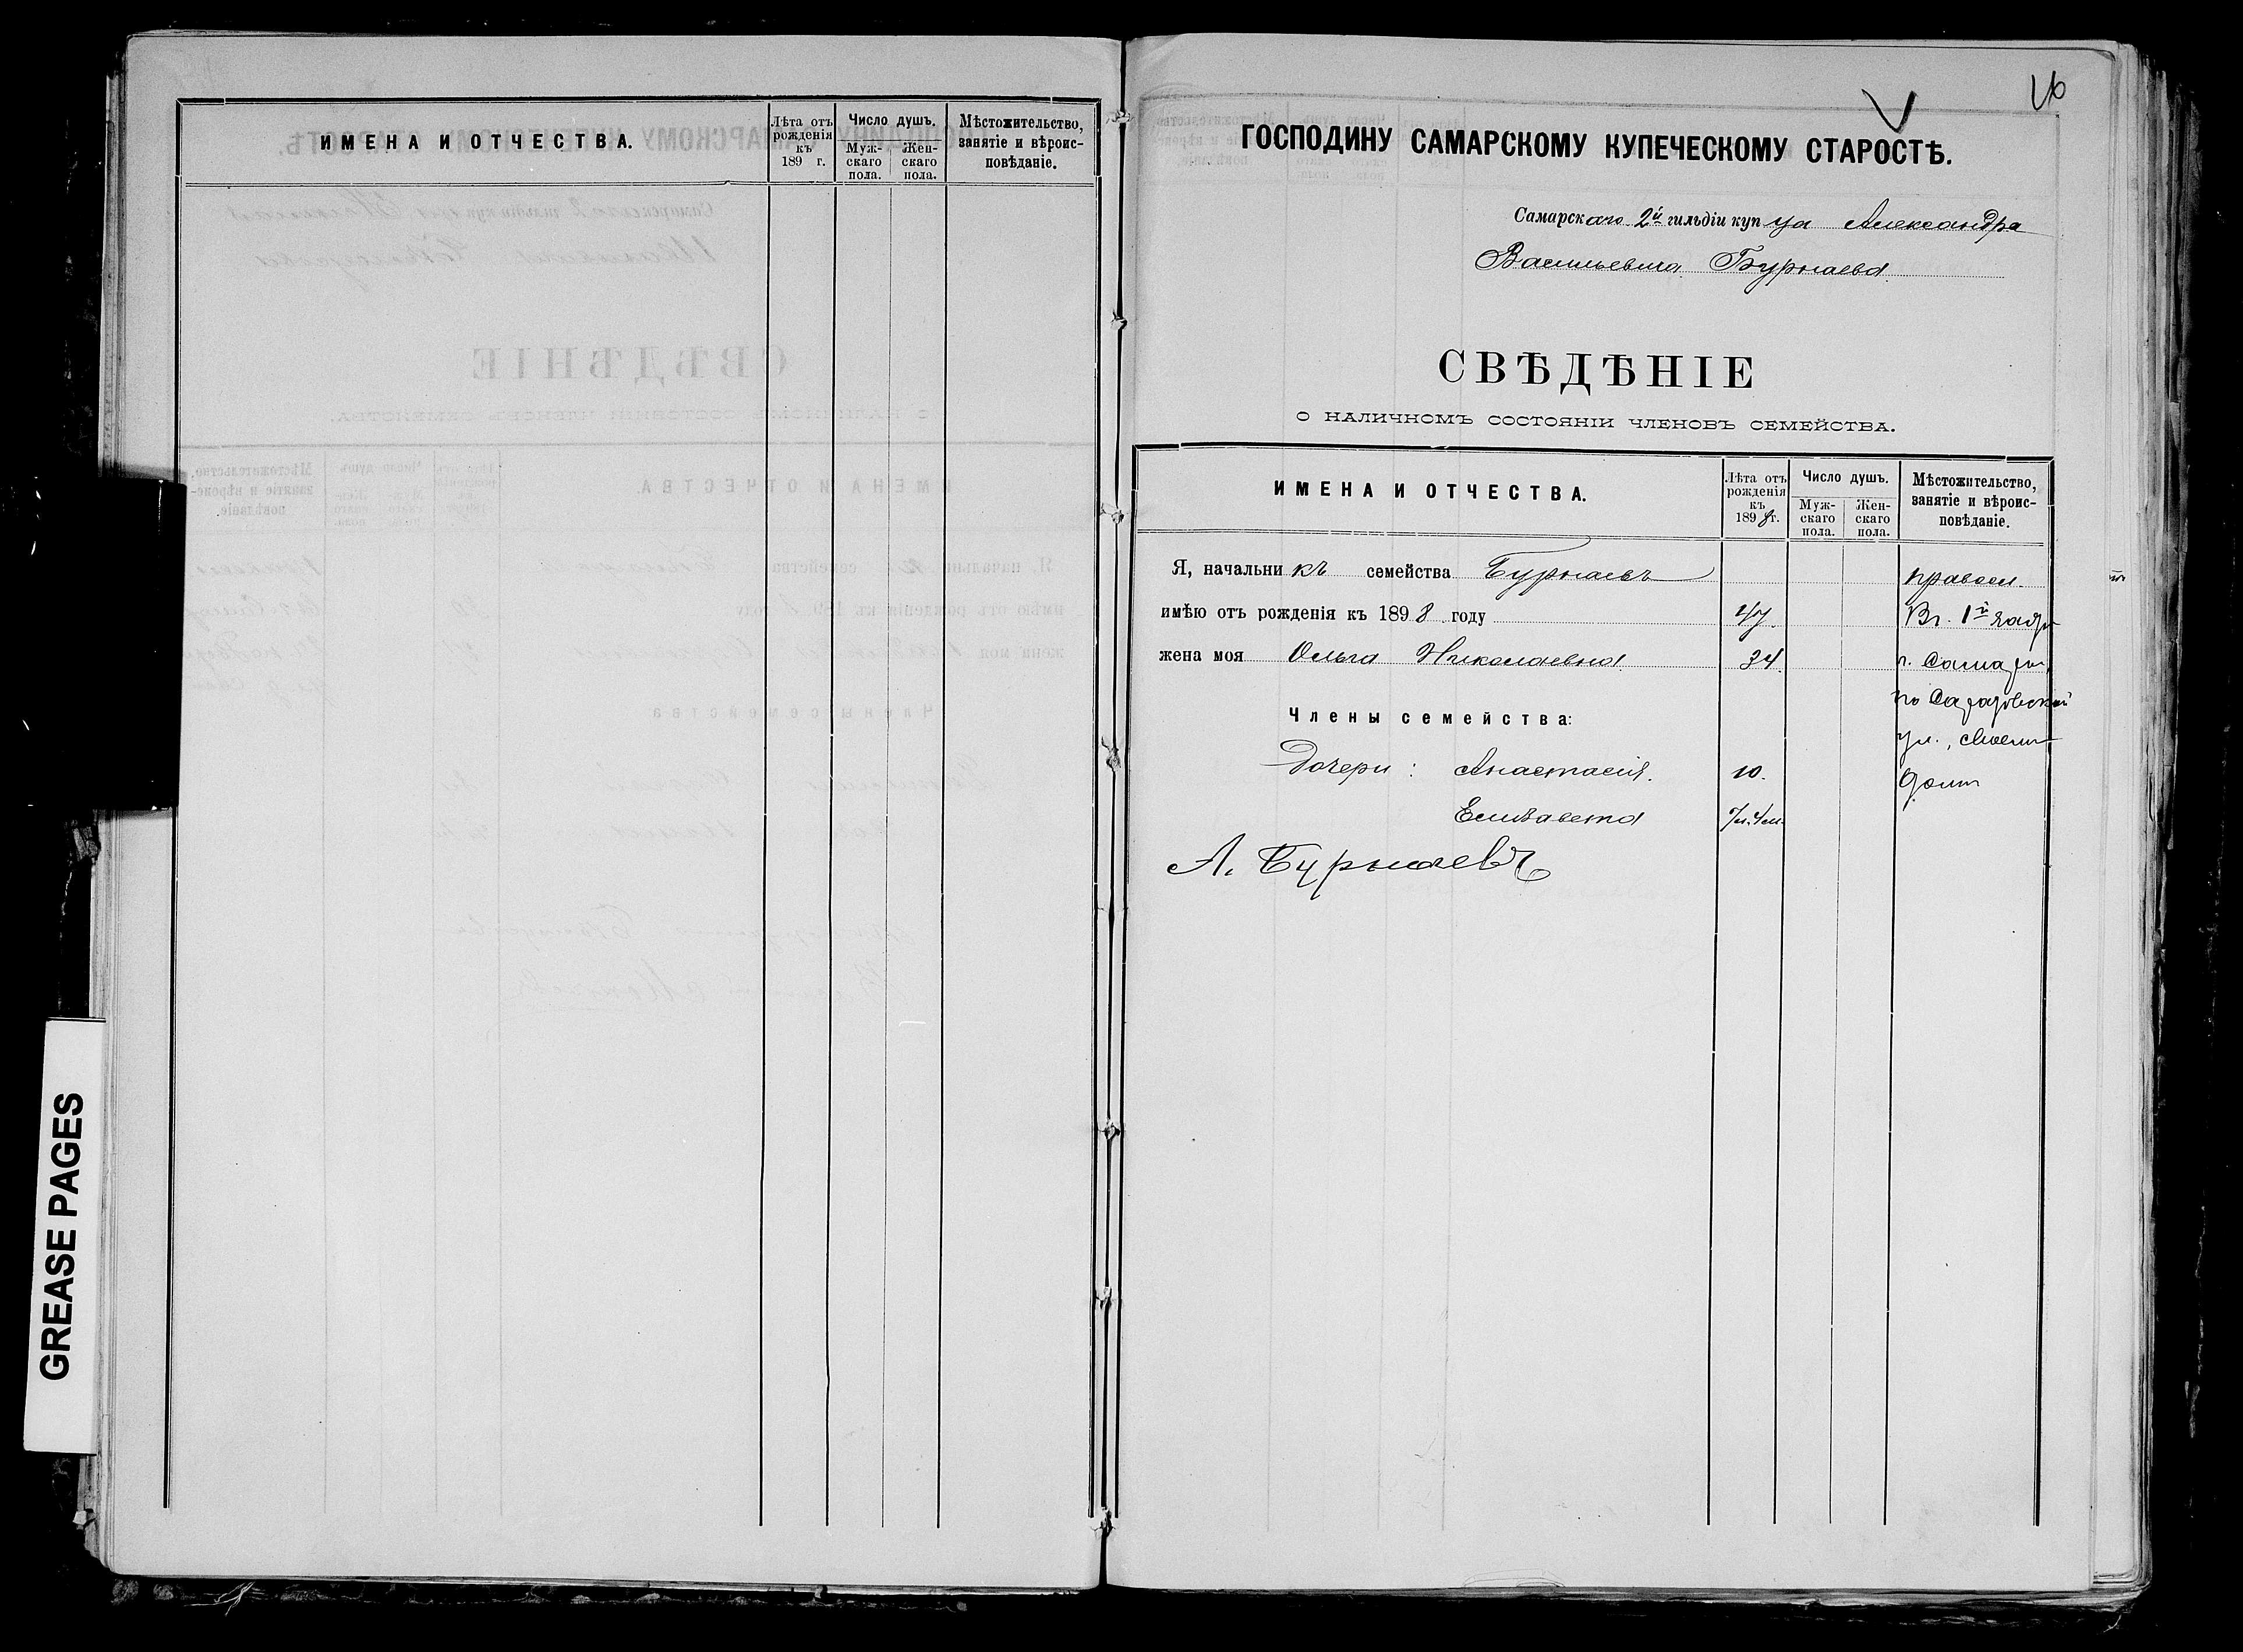 ИМЕНА И ОТЧЕСТВА.
Лѣта отъ рожденія къ 189 г.
Число душъ.
Мужскаго пола.
Женскаго пола.
Мѣстожительство, занятіе и вѣроисповѣданіе.
GREASE PAGES
ГОСПОДИНУ САМАРСКОМУ КУПЕЧЕСКОМУ СТАРОСТѢ.
Самарскаго 2й гильдіи купца Александра
Васильевича Бурнаева
СВѢДѢНІЕ
О НАЛИЧНОМЪ СОСТОЯНІИ ЧЛЕНОВЪ СЕМЕЙСТВА.
ИМЕНА И ОТЧЕСТВА.
Лѣта отъ рожденія къ 1898 г.
Число душъ.
Мужскаго пола.
Женскаго пола.
Мѣстожительство, занятіе и вѣроисповѣданіе.
Я, начальникъ семейства Бурнаевъ правосл.
имѣю отъ рожденія къ 1898 году 47. 1й
жена моя Ольга Николаевна 34. г. Самары,
по Саратовской
Члены семейства: ул., своемъ
Дочери: Анастасія. 10. домѣ
Елизавета
А. Бурнаевъ